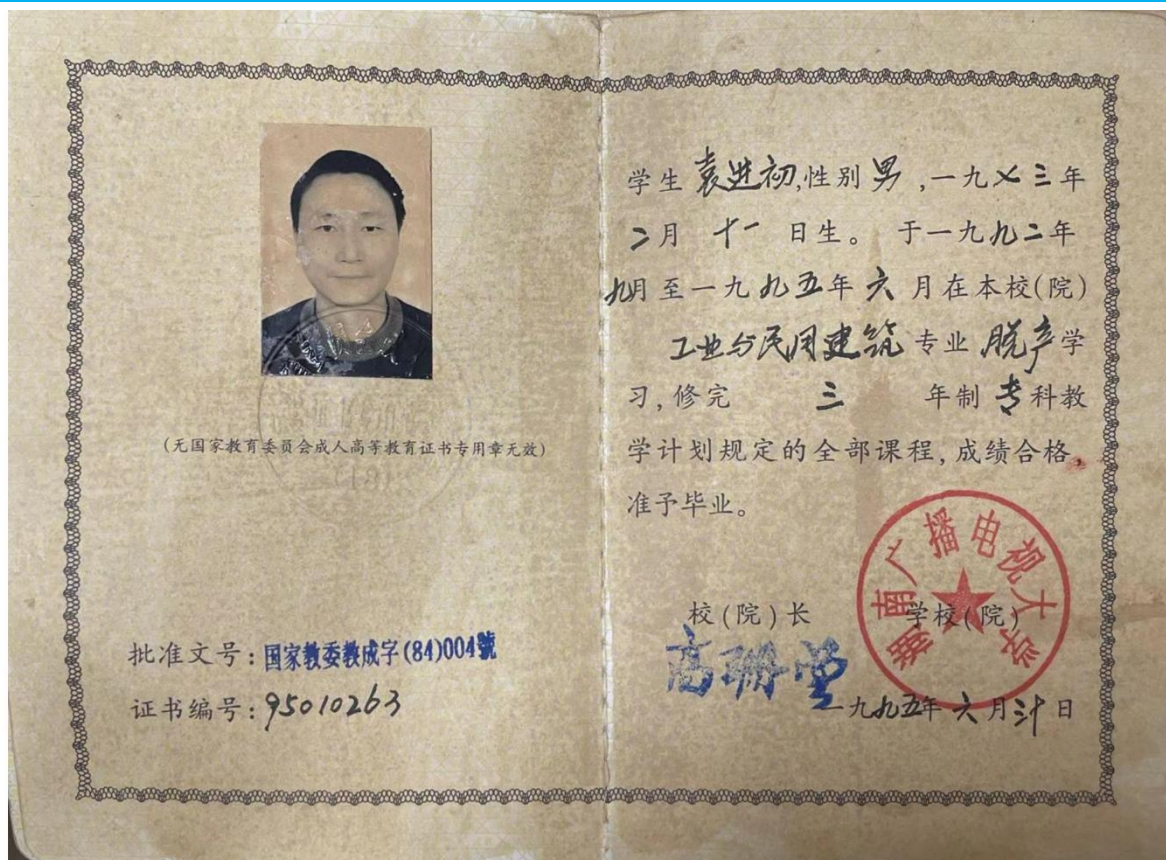 (无国家教育委员会成人高等教育证书专用章无效)
批准文号：国家教委教成字(84)004號
证书编号：95010263
学生 袁进初,性别 男 ,一九七三年
二月 十一 日生。 于一九九二年
九月至一九九五年 六 月在本校(院)
工业与民用建筑 专业 脱产学
习,修完 三 年制 专科教
学计划规定的全部课程,成绩合格,
准予毕业。
校(院)长 学校(院)
湖南广播电视大学
一九九五年 六 月三十日